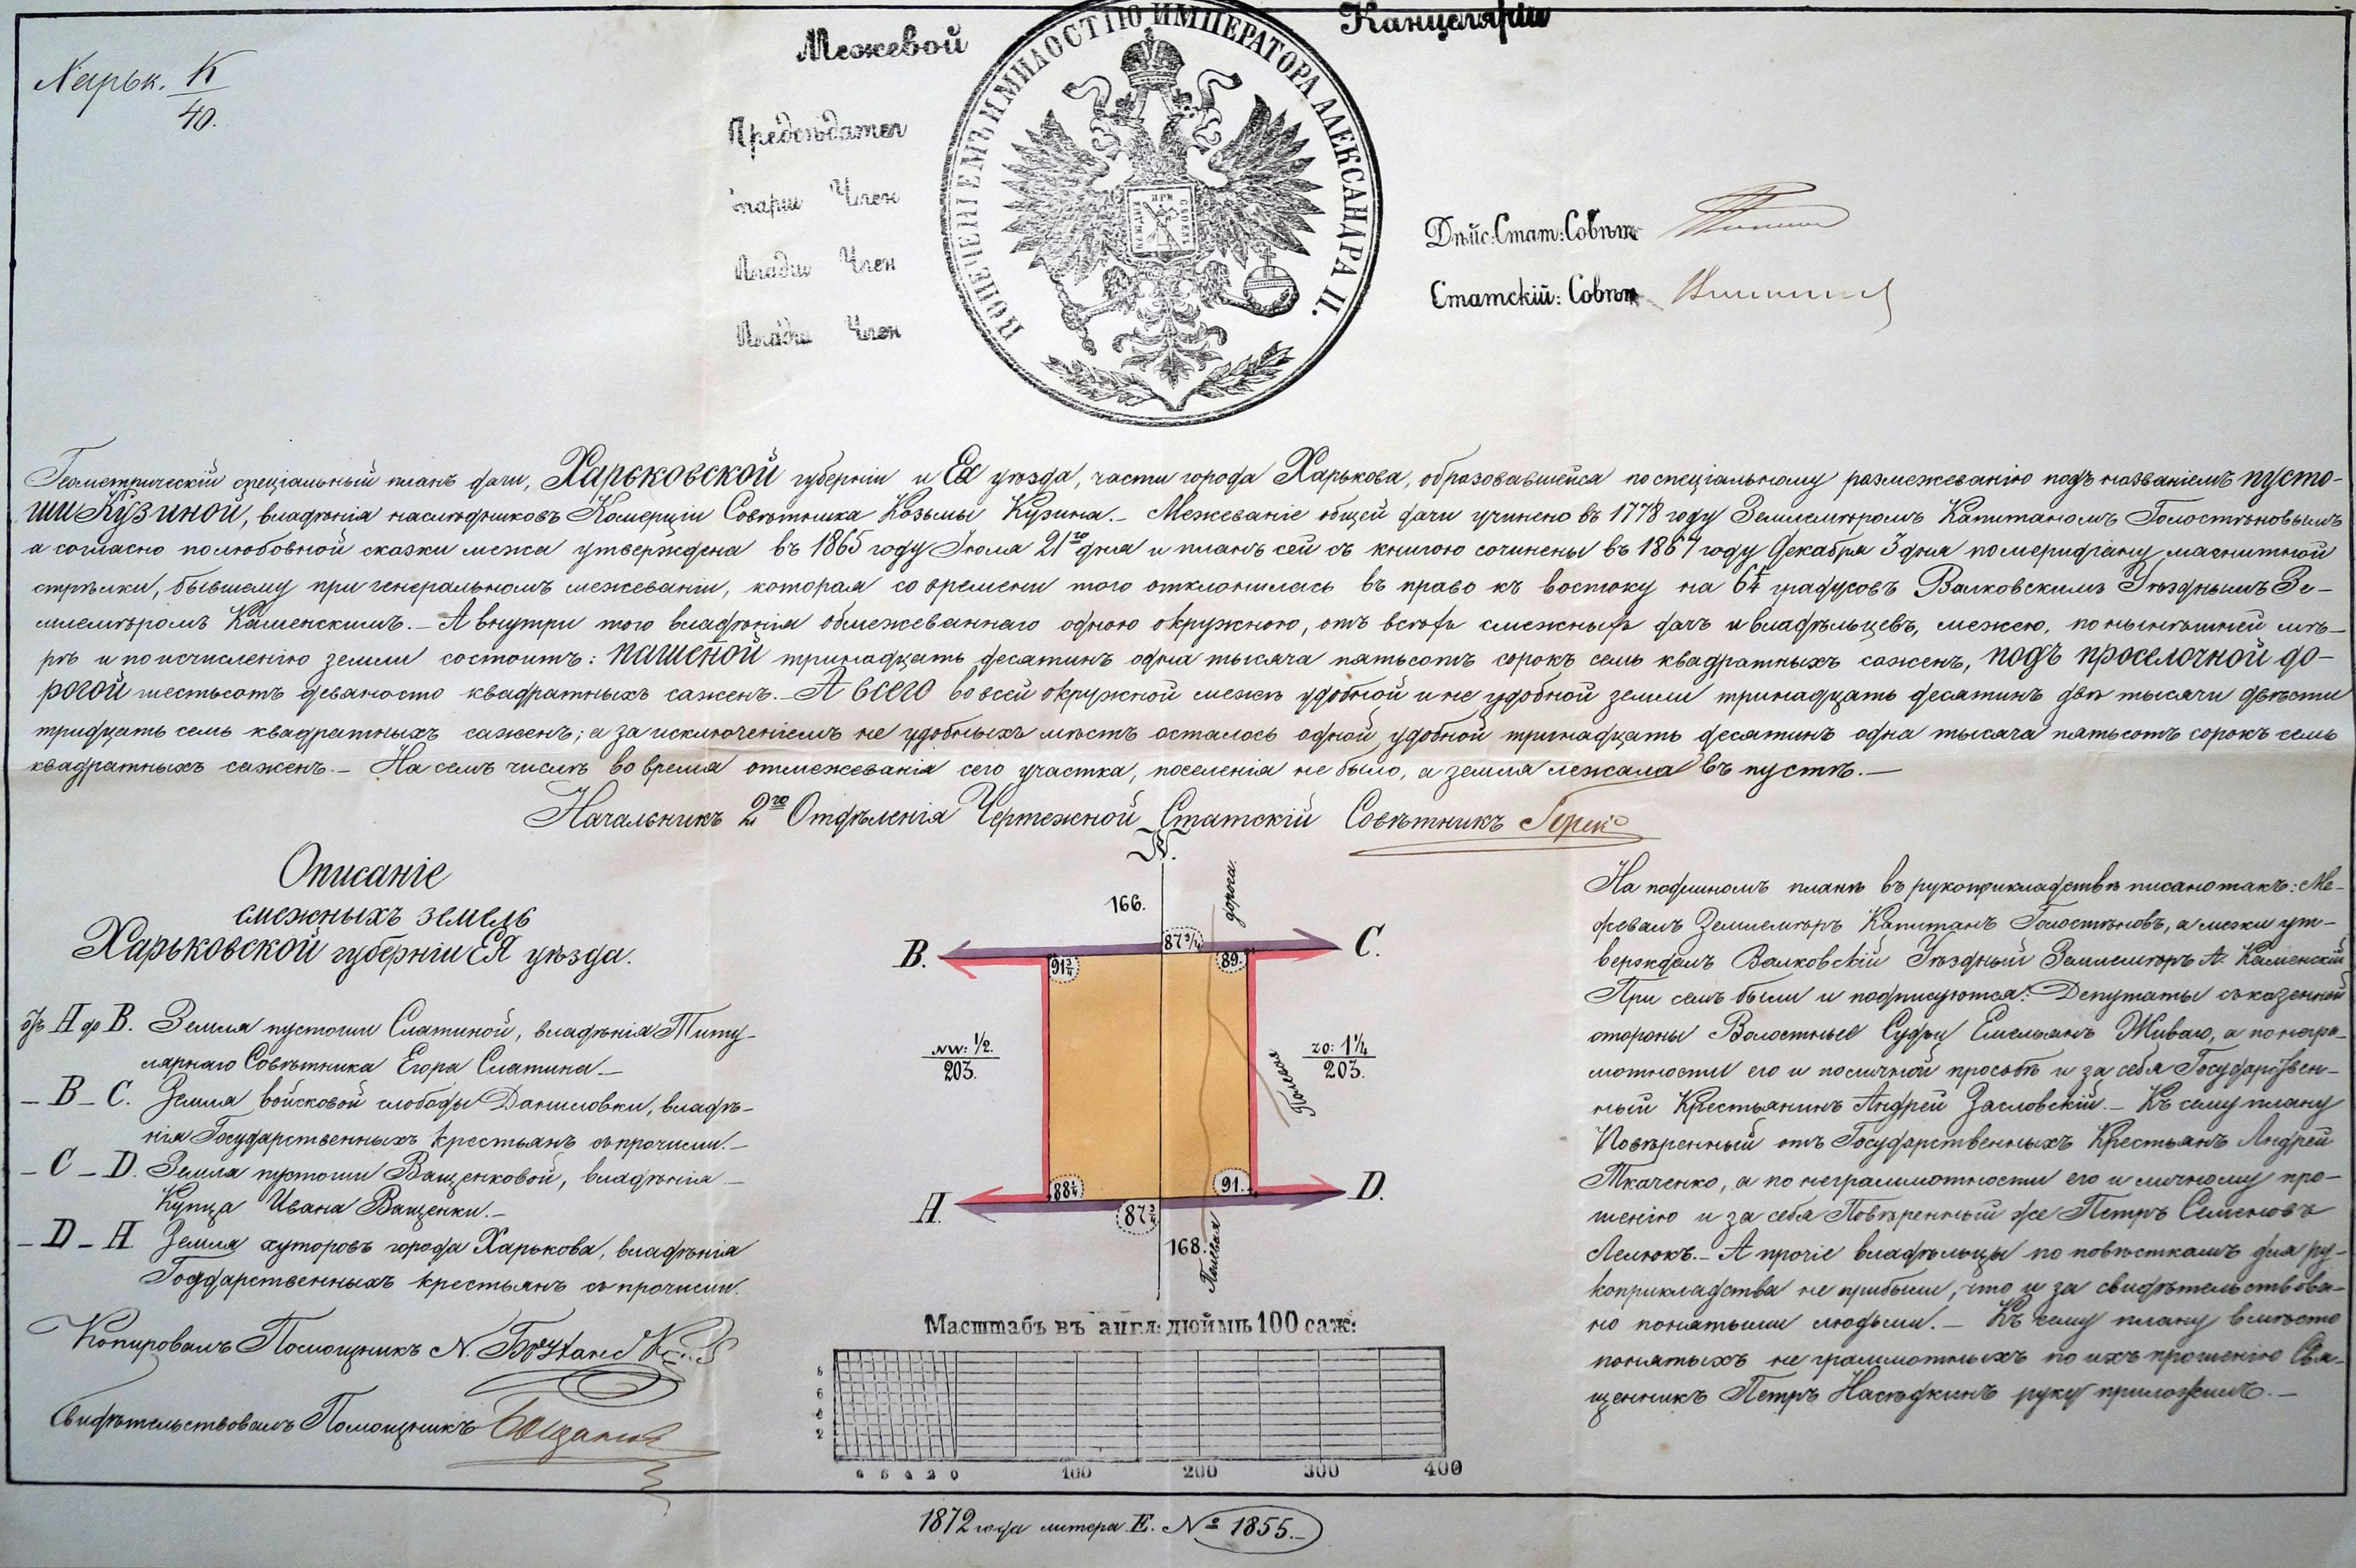 Межевой Канцеляріи
Харьк. К
40.
ПОПЕЧЕНІЕМЪ И МИЛОСТІЮ ИМПЕРАТОРА АЛЕКСАНДРА II.
Предсѣдател
Член
Млади Член
Млади Член
Дѣйс: Стат: Совѣт
Статскій: Совѣт
Геометрическій спеціальный планъ дачи, Харьковской губерніи и Ея уѣзда, части города Харькова, образовавшейся по спеціальному размежеванію подъ названіемъ пусто-
ши Кузиной, владѣнія наслѣдниковъ Комерціи Совѣтника Козьмы Кузина. – Межеваніе общей дачи учинено въ 1778 году Землемѣромъ Капитаномъ Голостѣновымъ
а согласно полюбовной сказки межа утверждена въ 1865 году Іюля 21го дня и планъ сей съ книгою сочинены въ 1867 году Декабря 3 дня по меридіану магнитной
стрѣлки, бывшему при генеральномъ межеваніи, которая со времени того отклонилась въ право къ востоку на градусовъ Валковскимъ Уѣзднымъ Зе-
млемѣромъ Каменскимъ. – А внутри того владѣнія обмежеваннаго одною окружною, отъ всѣхъ смежныхъ дачъ и владѣльцевъ, межею, по нынѣшней мѣ-
рѣ и по исчисленію земли состоитъ: пашенной тринадцать десятинъ одна тысяча пятьсотъ сорокъ семь квадратныхъ саженъ, подъ проселочной до-
рогой шестьсотъ девяносто квадратныхъ саженъ. – А всего во всей окружной межѣ удобной и не удобной земли тринадцать десятинъ двѣ тысячи двѣсти
тридцать семь квадратныхъ саженъ; а за исключеніемъ не удобныхъ мѣстъ осталось одной удобной тринадцать десятинъ одна тысяча пятьсотъ сорокъ семь
квадратныхъ саженъ. – На семъ числѣ во время отмежеванія сего участка, поселенія не было, а земля лежала въ пустѣ. –
Начальникъ 2го Отдѣленія Чертежной Статскій Совѣтникъ
Описаніе
смежныхъ земель
Харьковской губерніи ЕЯ уѣзда.
Отъ A до B. Земля пустоши Слатиной, владѣнія Титу-
лярнаго Совѣтника Егора Слатина –
– B – C. Земля войсковой слободы Даниловки, владѣ-
нія Государственныхъ крестьянъ съ прочими. –
– C – D. Земля пустоши Ващенковой, владѣнія –
Купца Ивана Ващенки. –
– D – A. Земля хуторовъ города Харькова, владѣнія
Государственныхъ крестьянъ съ прочими.
Копировалъ Помощникъ N.
Свидѣтельствовалъ Помощникъ
N.
166.
дороги.
B. 87¾ C.
91¾ 89.
NW: ½. ZO: 1¼
203. 203.
88¼ 91.
A. 87¾ D.
168.
Полевая
Масштабъ въ англ: дюймѣ 100 саж:
8 6 4 2 0 100 200 300 400
На подлиномъ планѣ въ рукоприкладствѣ писано такъ: Ме-
жевалъ Землемѣръ Капитанъ Голостѣновъ, а межи ут-
верждалъ Валковскій Уѣздный Землемѣръ А. Каменскій
При семъ были и подписуются: Депутаты съ казенной
стороны Волостные Судьи Емельянъ Живаго, а по негра-
мотности его и по личной просьбѣ и за себя Государствен-
ный Крестьянинъ Андрей Засловскій. – Къ сему плану
Повѣренный отъ Государственныхъ Крестьянъ Андрей
Ткаченко, а по неграммотности его и личному про-
шенію и за себя Повѣренный же Петръ Семеновъ
Лелюкъ. – А прочіе владѣльцы по повѣсткамъ для ру-
коприкладства не прибыли, что и за свидѣтельствова-
но понятыми людьми. – Къ сему плану вмѣсто
понятыхъ не граммотныхъ по ихъ прошенію Свя-
щенникъ Петръ Насѣдкинъ руку приложилъ. –
1872 года литера Е. № 1855. –